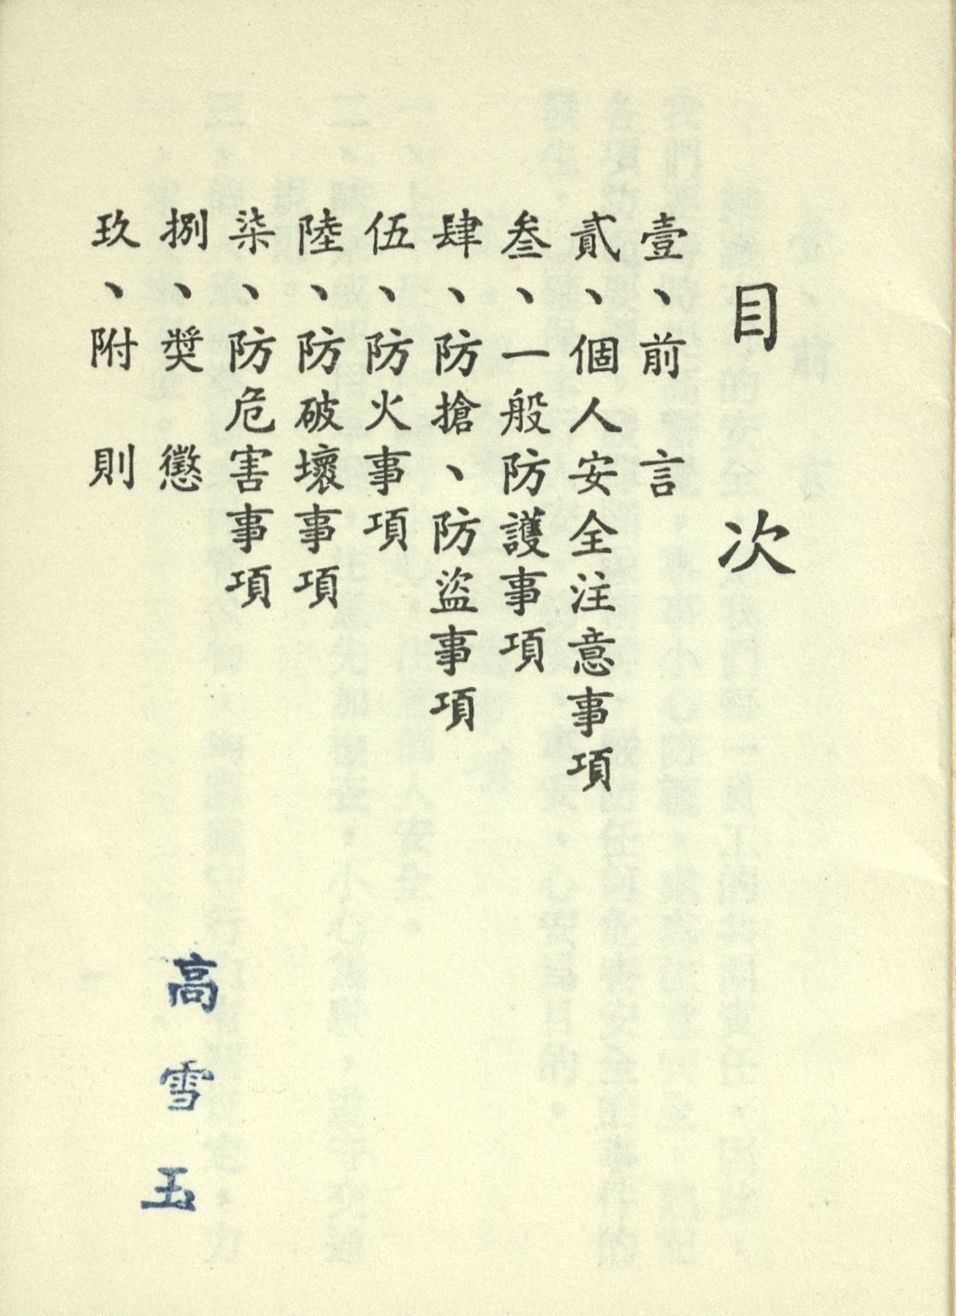 目次
壹、前言
貳、個人安全注意事項
叁、一般防護事項
肆、防搶、防盜事項
伍、防火事項
陸、防破壞事項
柒、防危害事項
捌、獎懲
玖、附則
高雪玉